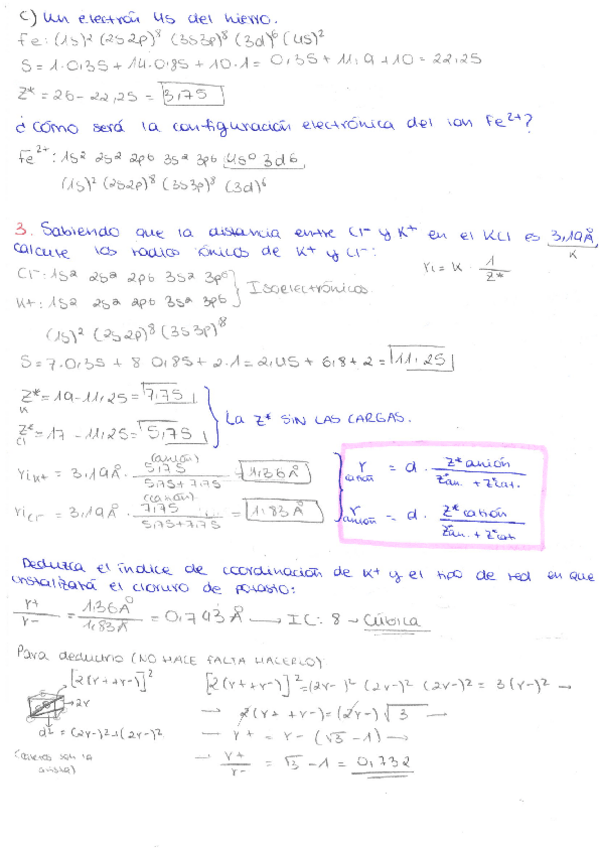 c) Un electrón 4s del hierro.
Fe: (1s)² (2s2p)⁸ (3s3p)⁸ (3d)⁶ (4s)²
S = 1·0,35 + 14·0,85 + 10·1 = 0,35 + 11,9 + 10 = 22,25
Z* = 26 - 22,25 = 3,75
¿Cómo será la configuración electrónica del ion Fe²⁺?
Fe²⁺: 1s² 2s² 2p6 3s² 3p6 4s⁰ 3d6
(1s)² (2s2p)⁸ (3s3p)⁸ (3d)⁶
3. Sabiendo que la distancia entre Cl⁻ y K⁺ en el KCl es 3,19Å,
calcule los radios iónicos de K⁺ y Cl⁻:
Cl⁻: 1s² 2s² 2p6 3s² 3p6
K+: 1s² 2s² 2p6 3s² 3p6
Isoelectrónicos
ri = K · 1/Z*
(1s)² (2s2p)⁸ (3s3p)⁸
S = 7·0,35 + 8 0,85 + 2·1 = 2,45 + 6,8 + 2 = 11,25
Z*K = 19 - 11,25 = 7,75
Z*Cl = 17 - 11,25 = 5,75
La Z* SIN LAS CARGAS.
riK+ = 3,19Å · 5,75 (anión) / 5,75 + 7,75 = 1,36Å
riCl⁻ = 3,19Å · 7,75 (catión) / 5,75 + 7,75 = 1,83Å
r catión = d · Z* anión / Z*an. + Z*cat.
r anión = d · Z* catión / Z*an. + Z*cat
Deduzca el índice de coordinación de K⁺ y el tipo de red en que
cristalizará el cloruro de potasio:
r+/r- = 1,36Å / 1,83Å = 0,743 Å → IC: 8 → Cúbica
Para deducirlo (NO HACE FALTA HACERLO)
[2(r+ + r-)]²
→ 2r
d² = (2r-)² + (2r-)²
[2(r+ + r-)]² = (2r-)² (2r-)² (2r-)² = 3(r-)² →
→ 2(r+ + r-) = (2r-) √3 →
→ r+ = r- (√3 - 1) →
→ r+/r- = √3 - 1 = 0,732